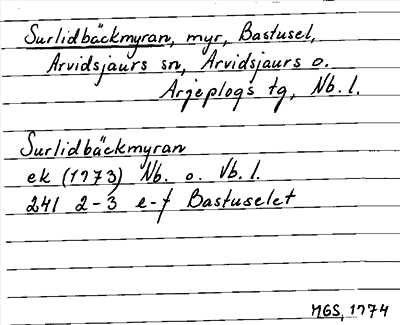 Surlidbäckmyran, myr, Bastusel,
Arvidsjaurs sn, Arvidsjaurs o.
Arjeplogs tg, Nb. l.
Surlidbäckmyran
ek (1973) Nb. o. Vb. l.
241 2-3 e-f Bastuselet
MGS, 1974